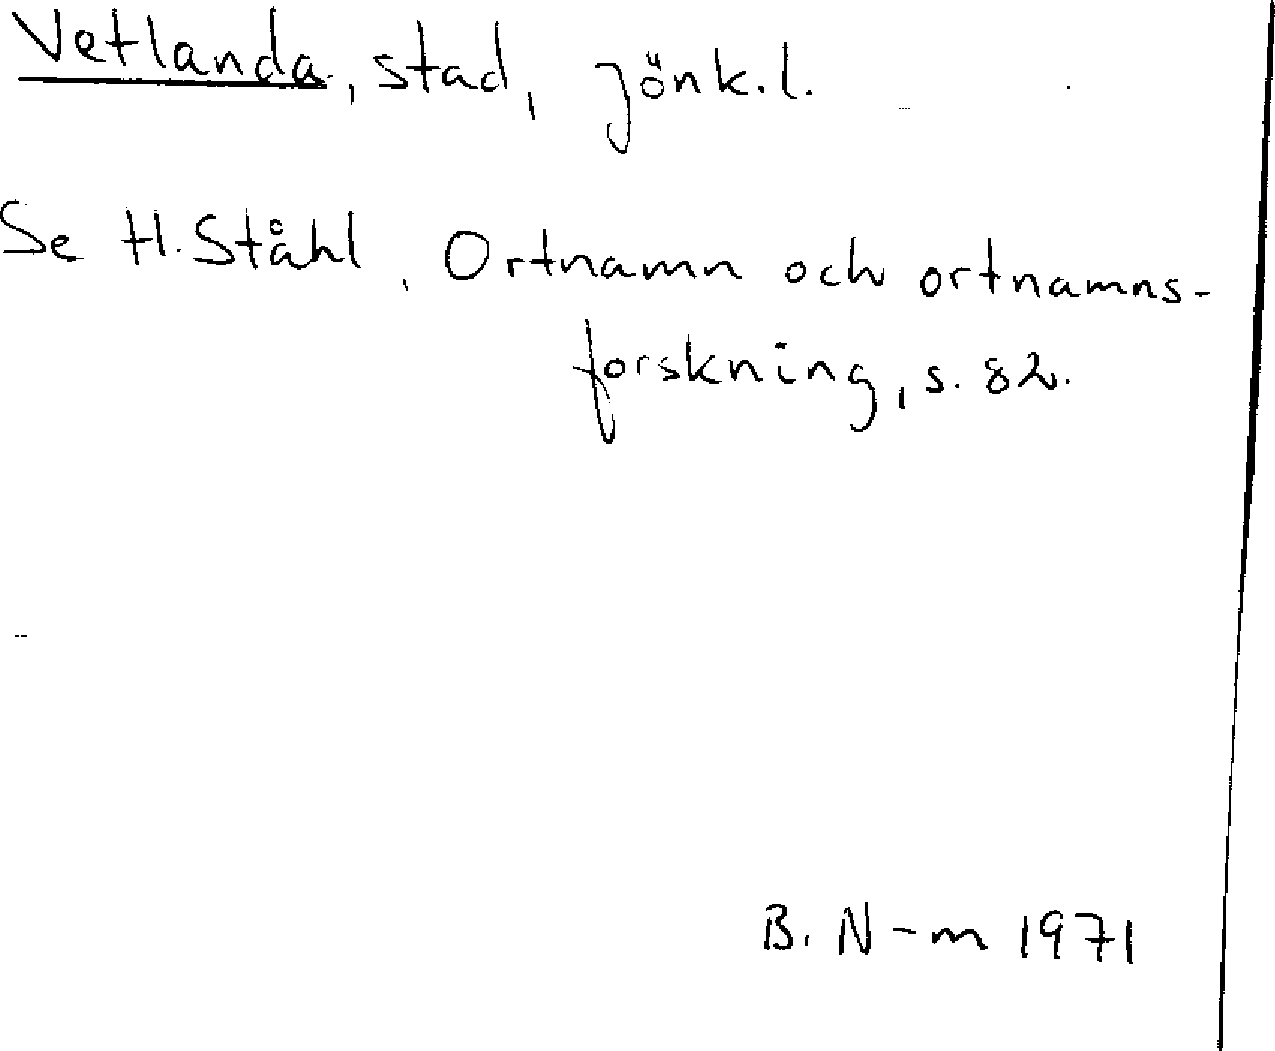 Vetlanda, stad, Jönk.l.
Se H. Ståhl, Ortnamn och ortnamns-
forskning, s. 82.
B. N-m 1971